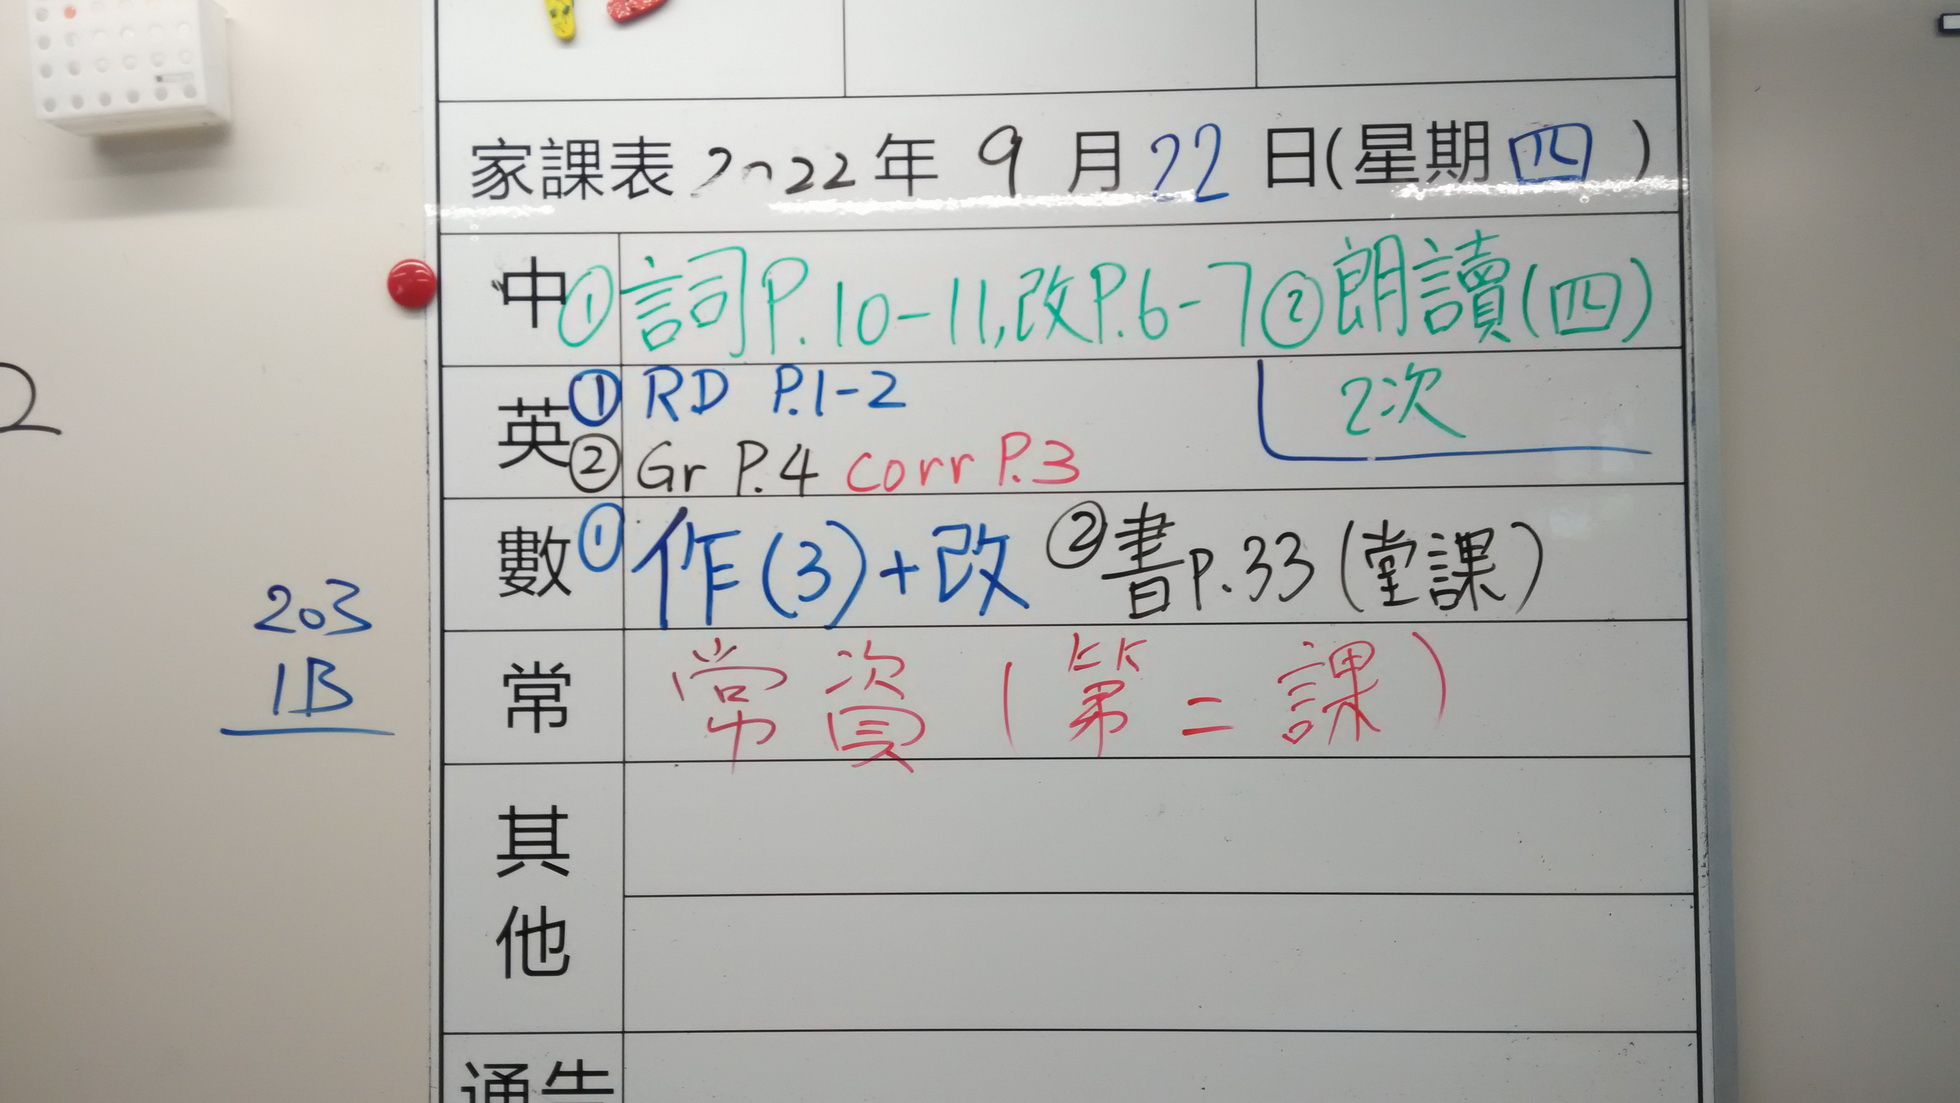 家課表 2022年 9月 22日(星期四)
中 ① 詞P.10-11,改P.6-7 ② 朗讀(四)
2次
英 ① RD P.1-2
② Gr P.4 corr P.3
數 ① 作(3)+改 ② 書P.33(堂課)
常 常資(第二課)
其他
通告
203
1B
2